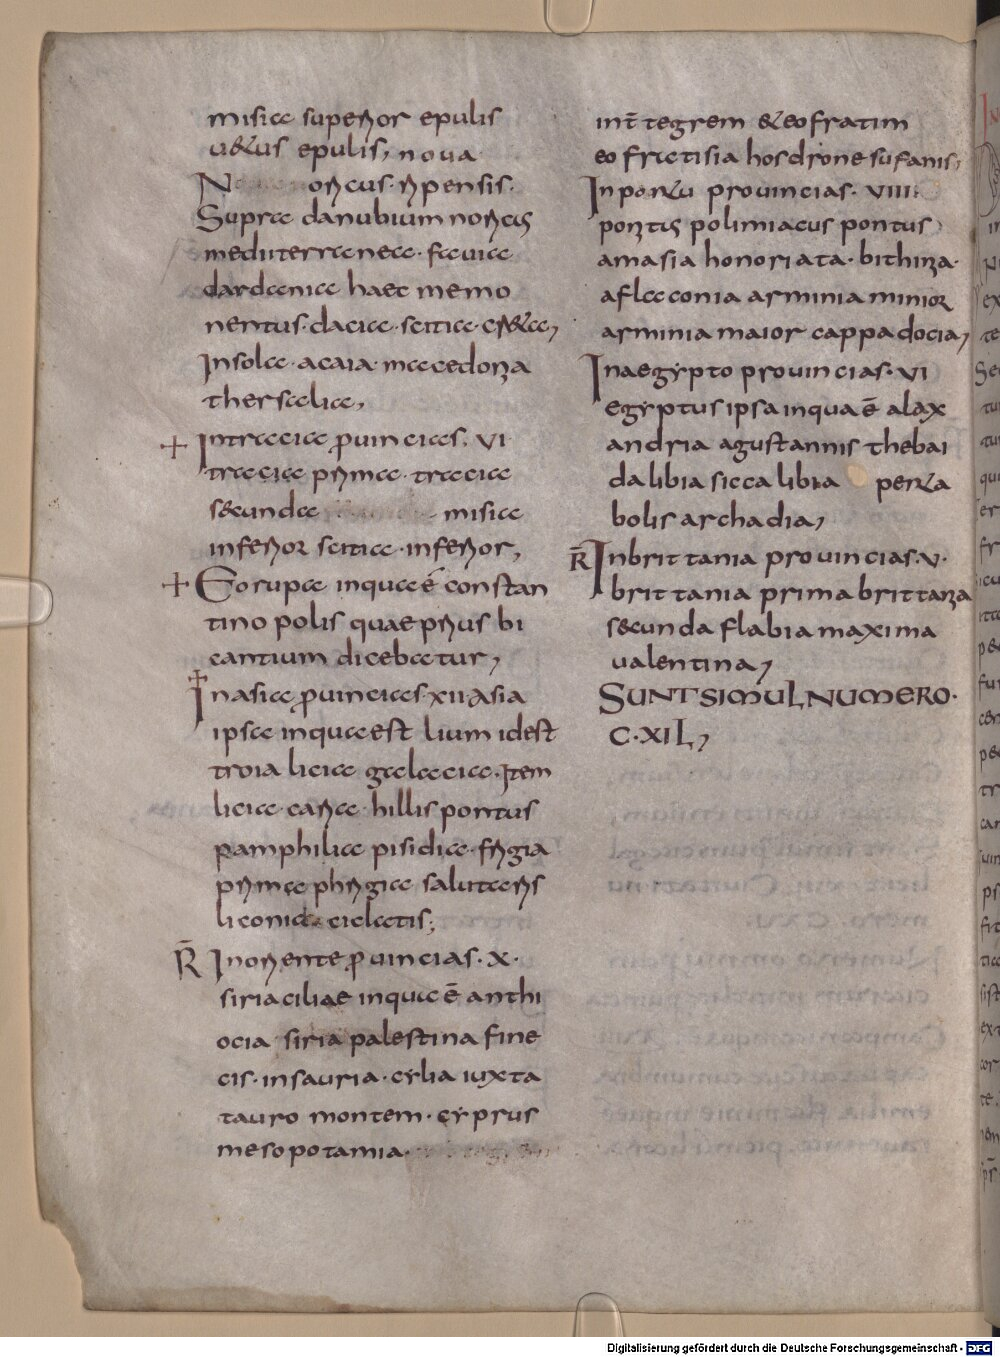 misiae superior epulis
uetus epulis, noua
N oricus ripensis.
Supra danubium noricus
mediterranea. fauia
dardania haec memo
nentus. dacia. scitia. creta,
Insola. acaia. macedonia
thersalia,
+ Intracia ꝓuincias. VI
tracia prima. tracia
secunda misia
inferior scitia. inferior,
+ Eorupa inqua ē constan
tinopolis quae prius bi
cantium dicebatur,
+ Inasia ꝓuincias. XII asia
ipsa inqua est lium idest
troia licia galacia. Item
licia caria. hillis pontus
pamphilia pisidia. frigia
prima phrigia salutaris
liconia cicletis;
R̄ Inoriente ꝓuincias. X.
siria ciliae inqua ē anthi
ocia siria palestina fine
cis. insauria. cylia iuxta
tauro montem. cyprus
mesopotamia.
int̄ tegrem & eofratim
eo fratisia hosdrone sufanis,
In pontu prouincias. VIIII.
pontis polimiacus pontus
amasia honoriata. bithinia.
aflaconia arminia minior
arminia maior cappadocia,
In aegypto prouincias. VI
egyptus ipsa inqua ē alax
andria agustannis thebai
da libia sicca libia penta
bolis archadia,
R̄ In brittania prouincias. V.
brittania prima brittania
secunda flabia maxima
ualentina,
SUNT SIMUL NUMERO.
C. XIL,
Digitalisierung gefördert durch die Deutsche Forschungsgemeinschaft - DFG